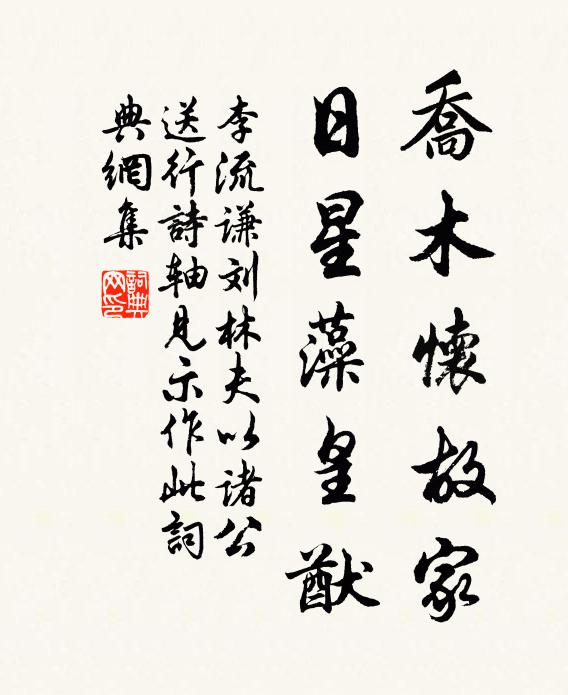 喬木懷故家
日星藻皇猷
李流谦刘林夫以诸公
送行詩轴見示作此詞
典網集
詞典网印